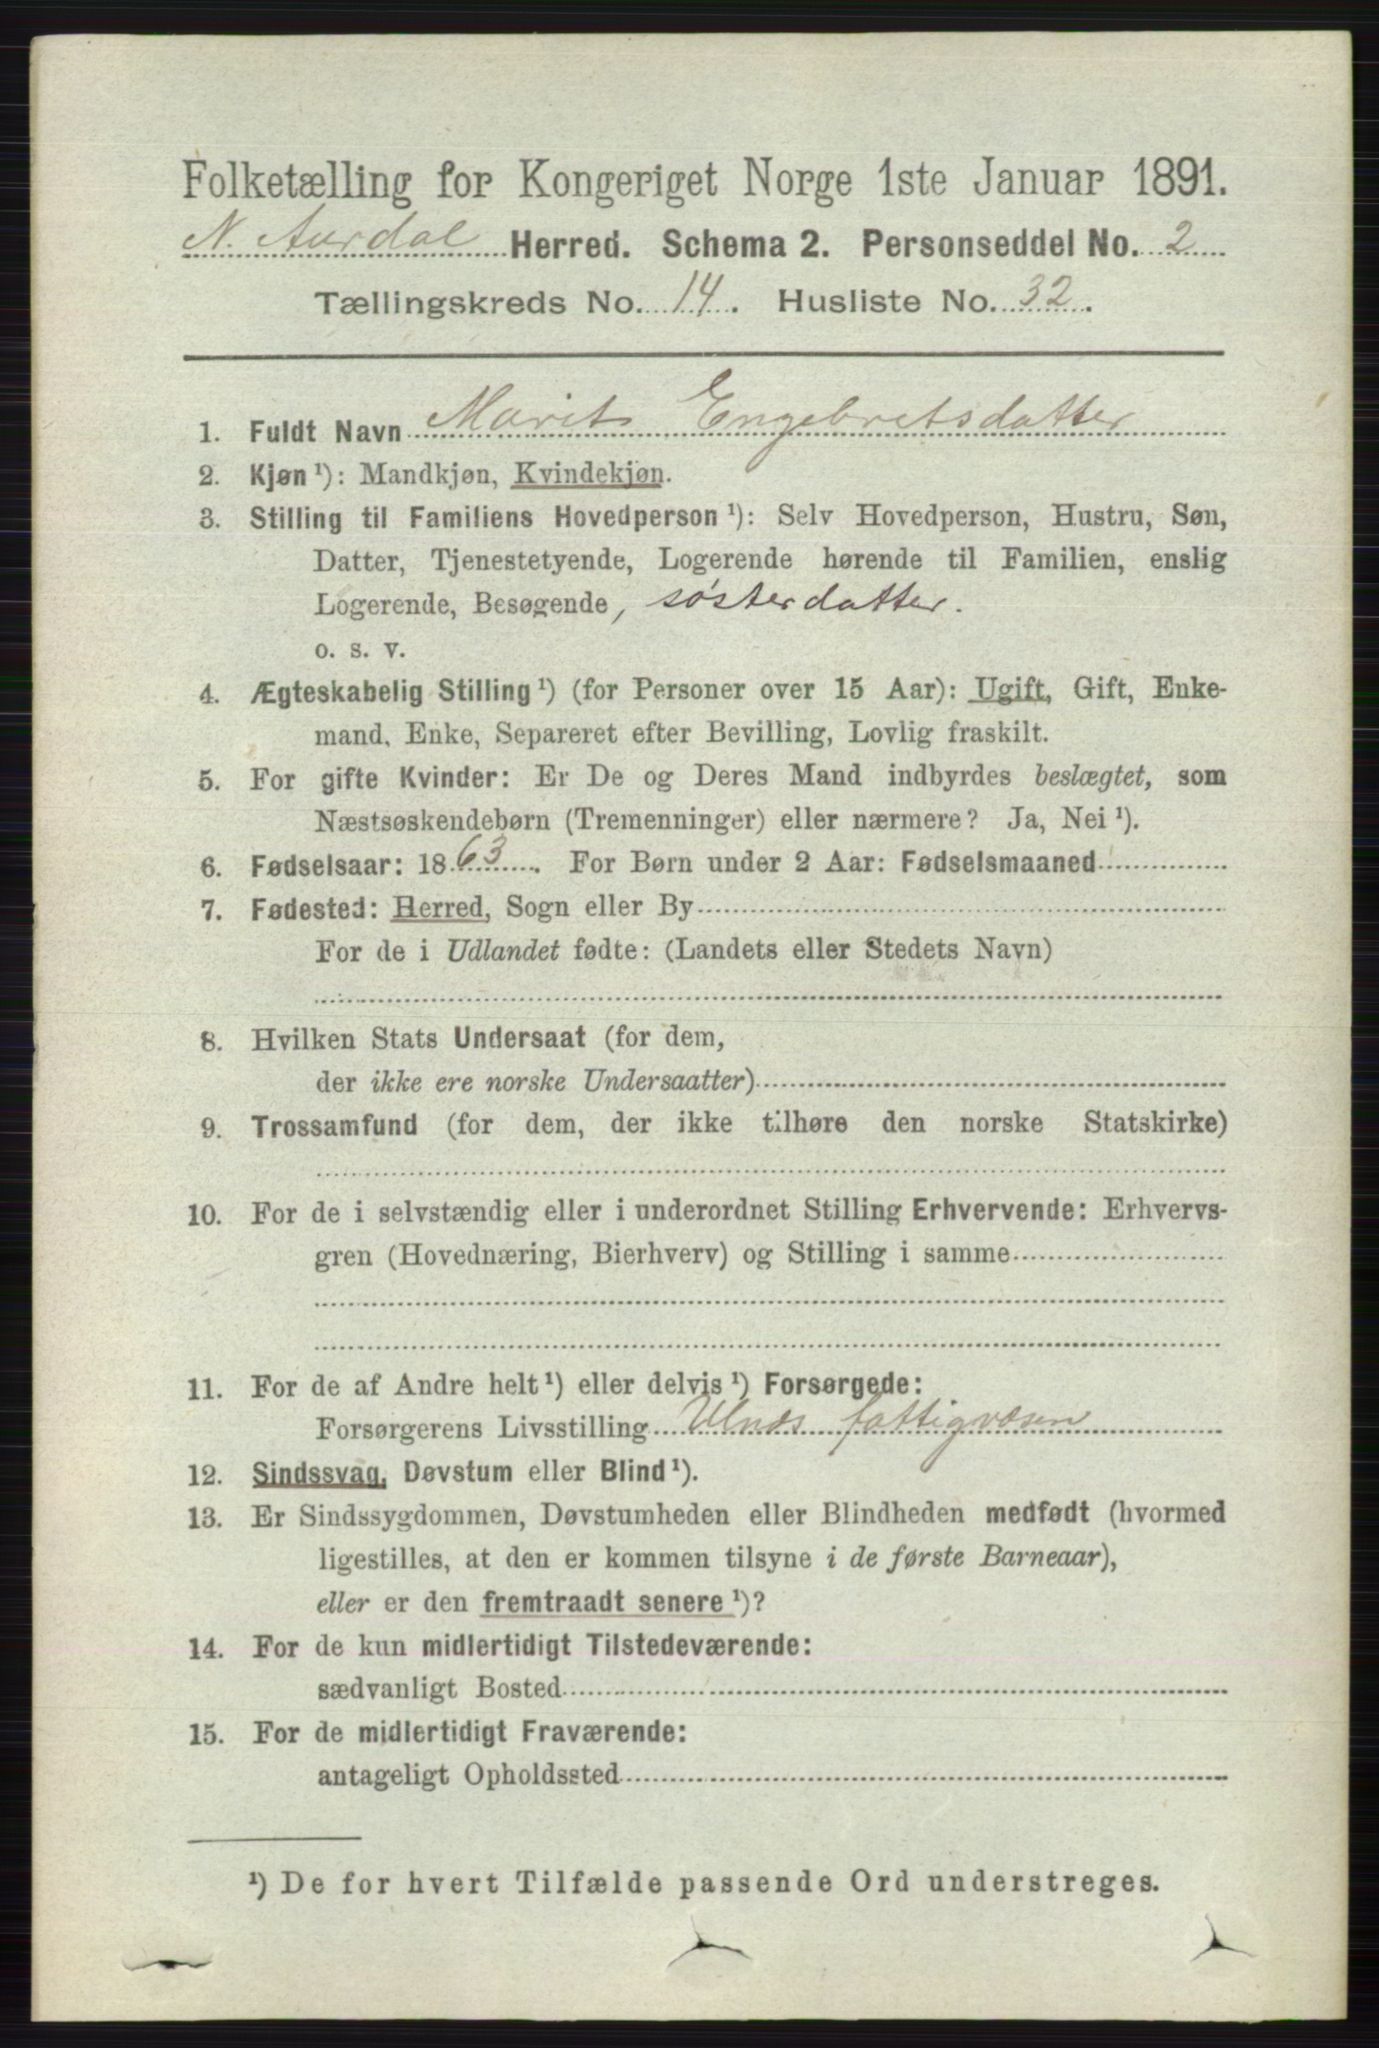 Folketælling for Kongeriget Norge 1ste Januar 1891.
N. Aurdal Herred. Schema 2. Personseddel No. 2
Tællingskreds No. 14. Husliste No. 32.
1. Fuldt Navn Marit Engebretsdatter
2. Kjøn ¹): Mandkjøn, Kvindekjøn.
3. Stilling til Familiens Hovedperson ¹): Selv Hovedperson, Hustru, Søn,
Datter, Tjenestetyende, Logerende hørende til Familien, enslig
Logerende, Besøgende, søsterdatter.
o. s. v.
4. Ægteskabelig Stilling ¹) (for Personer over 15 Aar): Ugift, Gift, Enke-
mand, Enke, Separeret efter Bevilling, Lovlig fraskilt.
5. For gifte Kvinder: Er De og Deres Mand indbyrdes beslægtet, som
Næstsøskendebørn (Tremenninger) eller nærmere? Ja, Nei ¹).
6. Fødselsaar: 1863. For Børn under 2 Aar: Fødselsmaaned
7. Fødested: Herred, Sogn eller By
For de i Udlandet fødte: (Landets eller Stedets Navn)
8. Hvilken Stats Undersaat (for dem,
der ikke ere norske Undersaatter)
9. Trossamfund (for dem, der ikke tilhøre den norske Statskirke)
10. For de i selvstændig eller i underordnet Stilling Erhvervende: Erhvervs-
gren (Hovednæring, Bierhverv) og Stilling i samme
11. For de af Andre helt ¹) eller delvis ¹) Forsørgede:
Forsørgerens Livsstilling Ulnæs fattigvæsen
12. Sindssvag, Døvstum eller Blind ¹).
13. Er Sindssygdommen, Døvstumheden eller Blindheden medfødt (hvormed
ligestilles, at den er kommen tilsyne i de første Barneaar),
eller er den fremtraadt senere ¹)?
14. For de kun midlertidigt Tilstedeværende:
sædvanligt Bosted
15. For de midlertidigt Fraværende:
antageligt Opholdssted
¹) De for hvert Tilfælde passende Ord understreges.